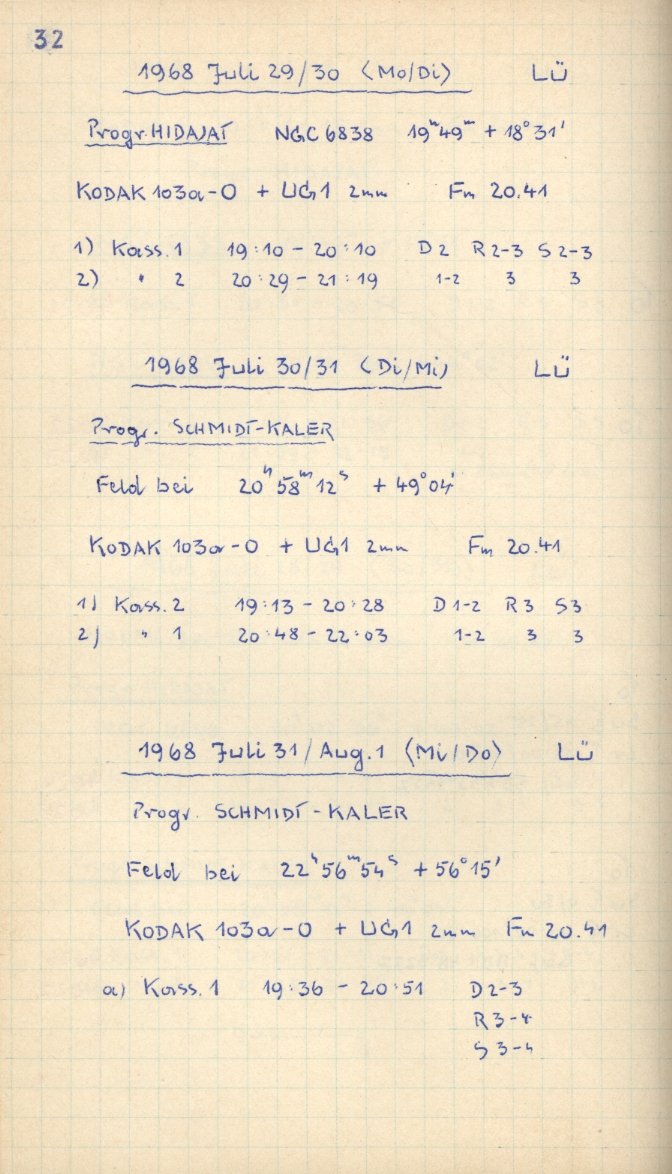 32
1968 Juli 29/30 (Mo/Di) LÜ
Progr. HIDAJAT NGC 6838 19ʰ49ᵐ + 18°31'
KODAK 103a-O + UG1 2mm Fm 20.41
1) Kass. 1 19:10 - 20:10 D2 R2-3 S2-3
2) " 2 20:29 - 21:19 1-2 3 3
1968 Juli 30/31 (Di/Mi) LÜ
Progr. SCHMIDT-KALER
Feld bei 20ʰ58ᵐ12ˢ + 49°04'
KODAK 103a-O + UG1 2mm Fm 20.41
1) Kass. 2 19:13 - 20:28 D1-2 R3 S3
2) " 1 20:48 - 22:03 1-2 3 3
1968 Juli 31/Aug. 1 (Mi/Do) LÜ
Progr. SCHMIDT-KALER
Feld bei 22ʰ56ᵐ54ˢ + 56°15'
KODAK 103a-O + UG1 2mm Fm 20.41
a) Kass. 1 19:36 - 20:51 D2-3
R3-4
S3-4